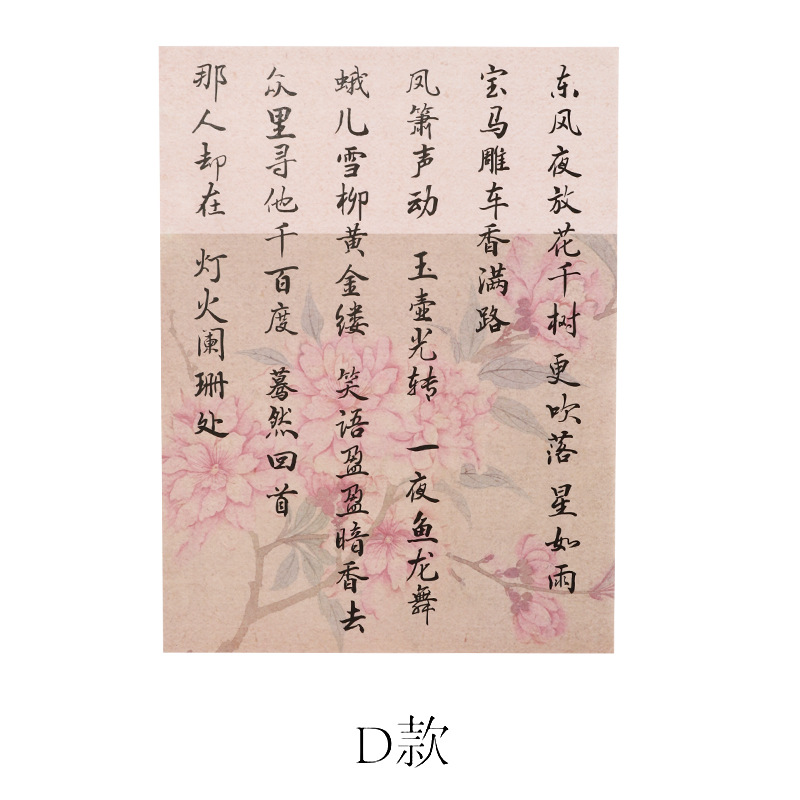 东风夜放花千树 更吹落 星如雨
宝马雕车香满路
凤箫声动 玉壶光转 一夜鱼龙舞
蛾儿雪柳黄金缕 笑语盈盈暗香去
众里寻他千百度 蓦然回首
那人却在 灯火阑珊处
D款